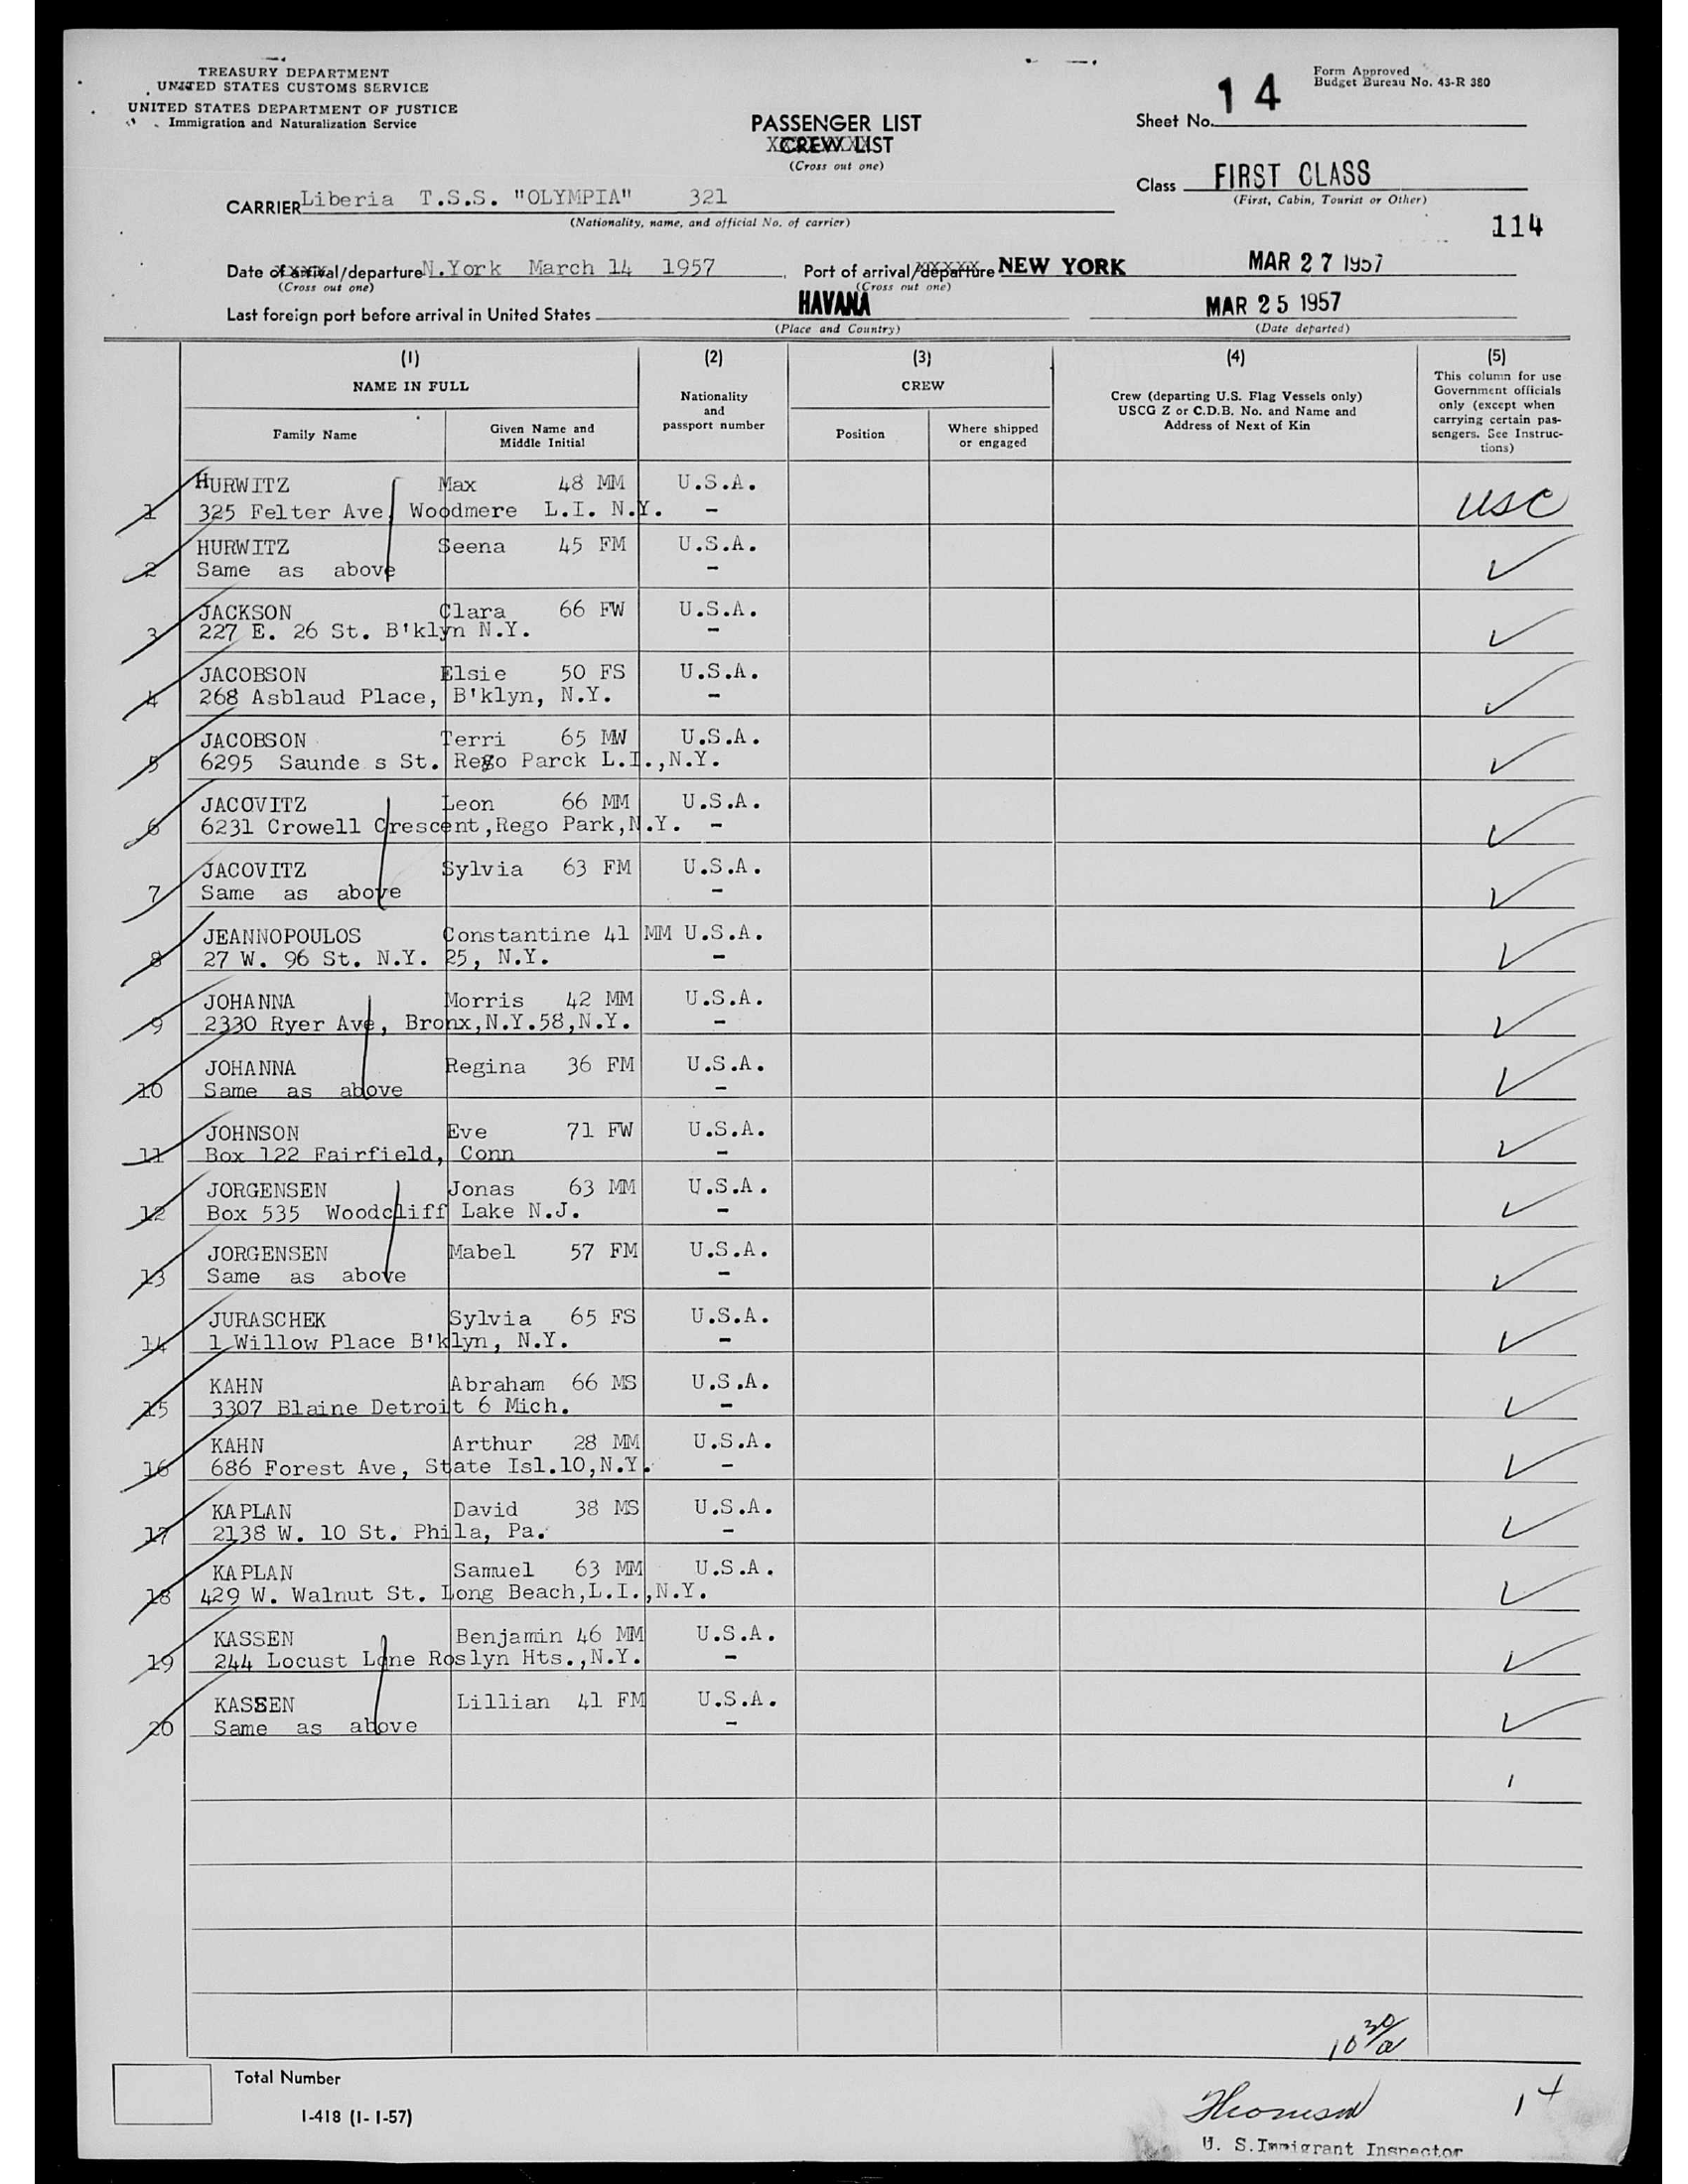 TREASURY DEPARTMENT
UNITED STATES CUSTOMS SERVICE
UNITED STATES DEPARTMENT OF JUSTICE
Immigration and Naturalization Service
Form Approved
Budget Bureau No. 43-R 380
PASSENGER LIST
CREW LIST
(Cross out one)
Sheet No. 14
Class FIRST CLASS
(First, Cabin, Tourist or Other)
CARRIER Liberia T.S.S. "OLYMPIA" 321
(Nationality, name, and official No. of carrier)
114
Date of arrival/departure N.York March 14 1957. Port of arrival/departure NEW YORK MAR 27 1957
(Cross out one) (Cross out one)
Last foreign port before arrival in United States HAVANA MAR 25 1957
(Place and Country) (Date departed)
(1) (2) (3) (4) (5)
NAME IN FULL
Family Name
Given Name and Middle Initial
Nationality and passport number
CREW
Position
Where shipped or engaged
Crew (departing U.S. Flag Vessels only)
USCG Z or C.D.B. No. and Name and
Address of Next of Kin
This column for use
Government officials
only (except when
carrying certain pas-
sengers. See Instruc-
tions)
HURWITZ Max 48 MM U.S.A.
1 325 Felter Ave Woodmere L.I. N.Y. - USC
HURWITZ Seena 45 FM U.S.A.
2 Same as above -
JACKSON Clara 66 FW U.S.A.
3 227 E. 26 St. B'klyn N.Y. -
JACOBSON Elsie 50 FS U.S.A.
4 268 Asblaud Place, B'klyn, N.Y. -
JACOBSON Terri 65 MW U.S.A.
5 6295 Saunde s St. Rego Parck L.I.,N.Y.
JACOVITZ Leon 66 MM U.S.A.
6 6231 Crowell Crescent,Rego Park,N.Y. -
JACOVITZ Sylvia 63 FM U.S.A.
7 Same as above -
JEANNOPOULOS Constantine 41 MM U.S.A.
8 27 W. 96 St. N.Y. 25, N.Y. -
JOHANNA Morris 42 MM U.S.A.
9 2330 Ryer Ave, Bronx,N.Y.58,N.Y. -
JOHANNA Regina 36 FM U.S.A.
10 Same as above -
JOHNSON Eve 71 FW U.S.A.
11 Box 122 Fairfield, Conn -
JORGENSEN Jonas 63 MM U.S.A.
12 Box 535 Woodcliff Lake N.J. -
JORGENSEN Mabel 57 FM U.S.A.
13 Same as above -
JURASCHEK Sylvia 65 FS U.S.A.
14 1 Willow Place B'klyn, N.Y. -
KAHN Abraham 66 MS U.S.A.
15 3307 Blaine Detroit 6 Mich. -
KAHN Arthur 28 MM U.S.A.
16 686 Forest Ave, State Isl.10,N.Y. -
KAPLAN David 38 MS U.S.A.
17 2138 W. 10 St. Phila, Pa. -
KAPLAN Samuel 63 MM U.S.A.
18 429 W. Walnut St. Long Beach,L.I.,N.Y.
KASSEN Benjamin 46 MM U.S.A.
19 244 Locust Lane Roslyn Hts.,N.Y. -
KASSEN Lillian 41 FM U.S.A.
20 Same as above -
10 30/a
Total Number
I-418 (1-1-57)
14
U. S. Immigrant Inspector